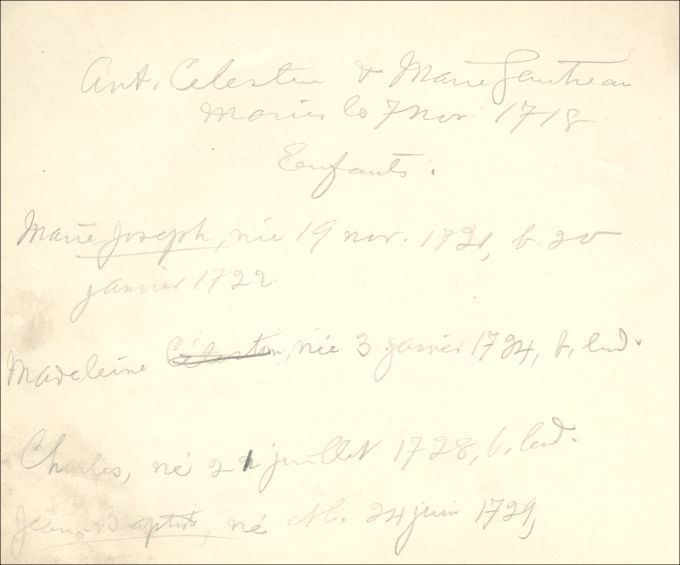 Ant. Célestin & Marie Gautreau
Mariés le 7 nov 1718
Enfants.
Marie Joseph, née 19 nov. 1721, b. 20
janvier 1722
Madeleine Célestin, née 3 janvier 1724, b. lend.
Charles, né 21 juillet 1728, b. lend.
Jean-Baptiste, né et b. 24 juin 1729,